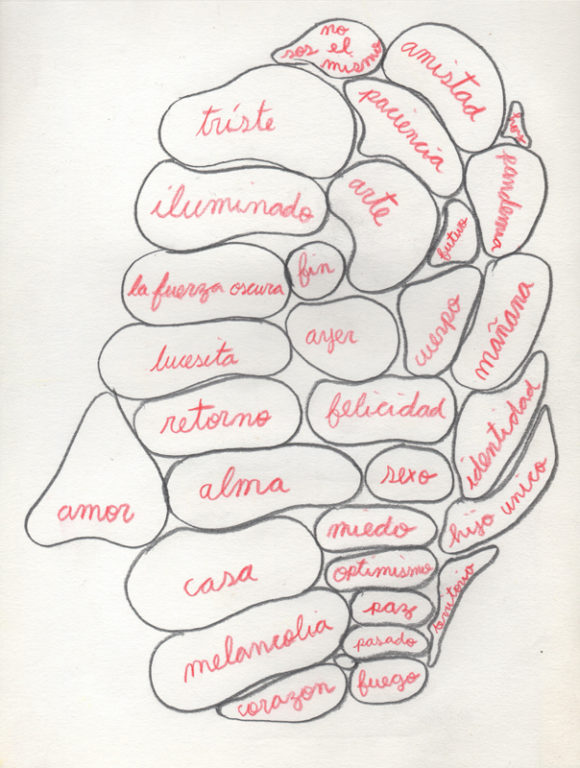 no
sos el
mismo
amistad
triste
paciencia
hoy
pandemia
iluminado
arte
futuro
la fuerza oscura
fin
mañana
cuerpo
ayer
lucesita
retorno
felicidad
identidad
amor
alma
sexo
hijo unico
miedo
casa
optimismo
territorio
paz
melancolia
pasado
corazon
fuego